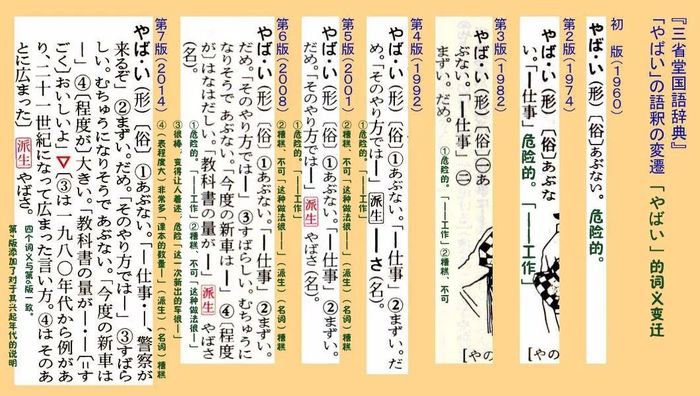 『三省堂国語辞典』
「やばい」の語釈の変遷 「やばい」的词义变迁
初 版(1960)
やば・い(形)〔俗〕あぶない。 危险的。
第2版(1974)
やば・い(形)〔俗〕あぶな
い。「―仕事」 危险的。「――工作」
[やの
第3版(1982)
やば・い(形)〔俗〕㊀あ
ぶない。「―仕事」㊁
まずい。だめ。
①危险的。「――工作」②糟糕、不可
[やの
第4版(1992)
やば・い(形)〔俗〕①あぶない。「―仕事」②まずい。だ
め。「そのやり方では―」 派生 ―さ(名)。
第5版(2001)
やば・い(形)〔俗〕①あぶない。「―仕事」②まずい。
だめ。「そのやり方では―」 派生 やばさ(名)。
①危险的。「――工作」②糟糕、不可「这种做法很――」(派生)(名词)糟糕
第6版(2008)
やば・い(形)〔俗〕①あぶない。「―仕事」②まずい。
だめ。「そのやり方では―」③すばらしい。むちゅうに
なりそうで あぶない。「今度の新車は―」④〔程度
が〕はなはだしい。「教科書の量が―」 派生 やばさ
(名)。
①危险的。「――工作」②糟糕、不可「这种做法很――」
③很棒、变得让人着迷、危险「这一次新出的车很――」
④(表程度大)非常多「课本的数量――」(派生)(名词)糟糕
第7版(2014)
やば・い(形)〔俗〕①あぶない。「―仕事・―、警察が
来るぞ」②まずい。だめ。「そのやり方では―」③すばら
しい。むちゅうになりそうで あぶない。「今度の新車は
―」④〔程度が〕大きい。「教科書の量が―・―〔=す
ごく〕おいしいよ」▽〔③は一九八〇年代から例があ
り、二十一世紀になって広まった言い方。④はそのあ
とに広まった〕 派生 やばさ。
四个词义与第6版一致。
第7版添加了对于其兴起年代的说明